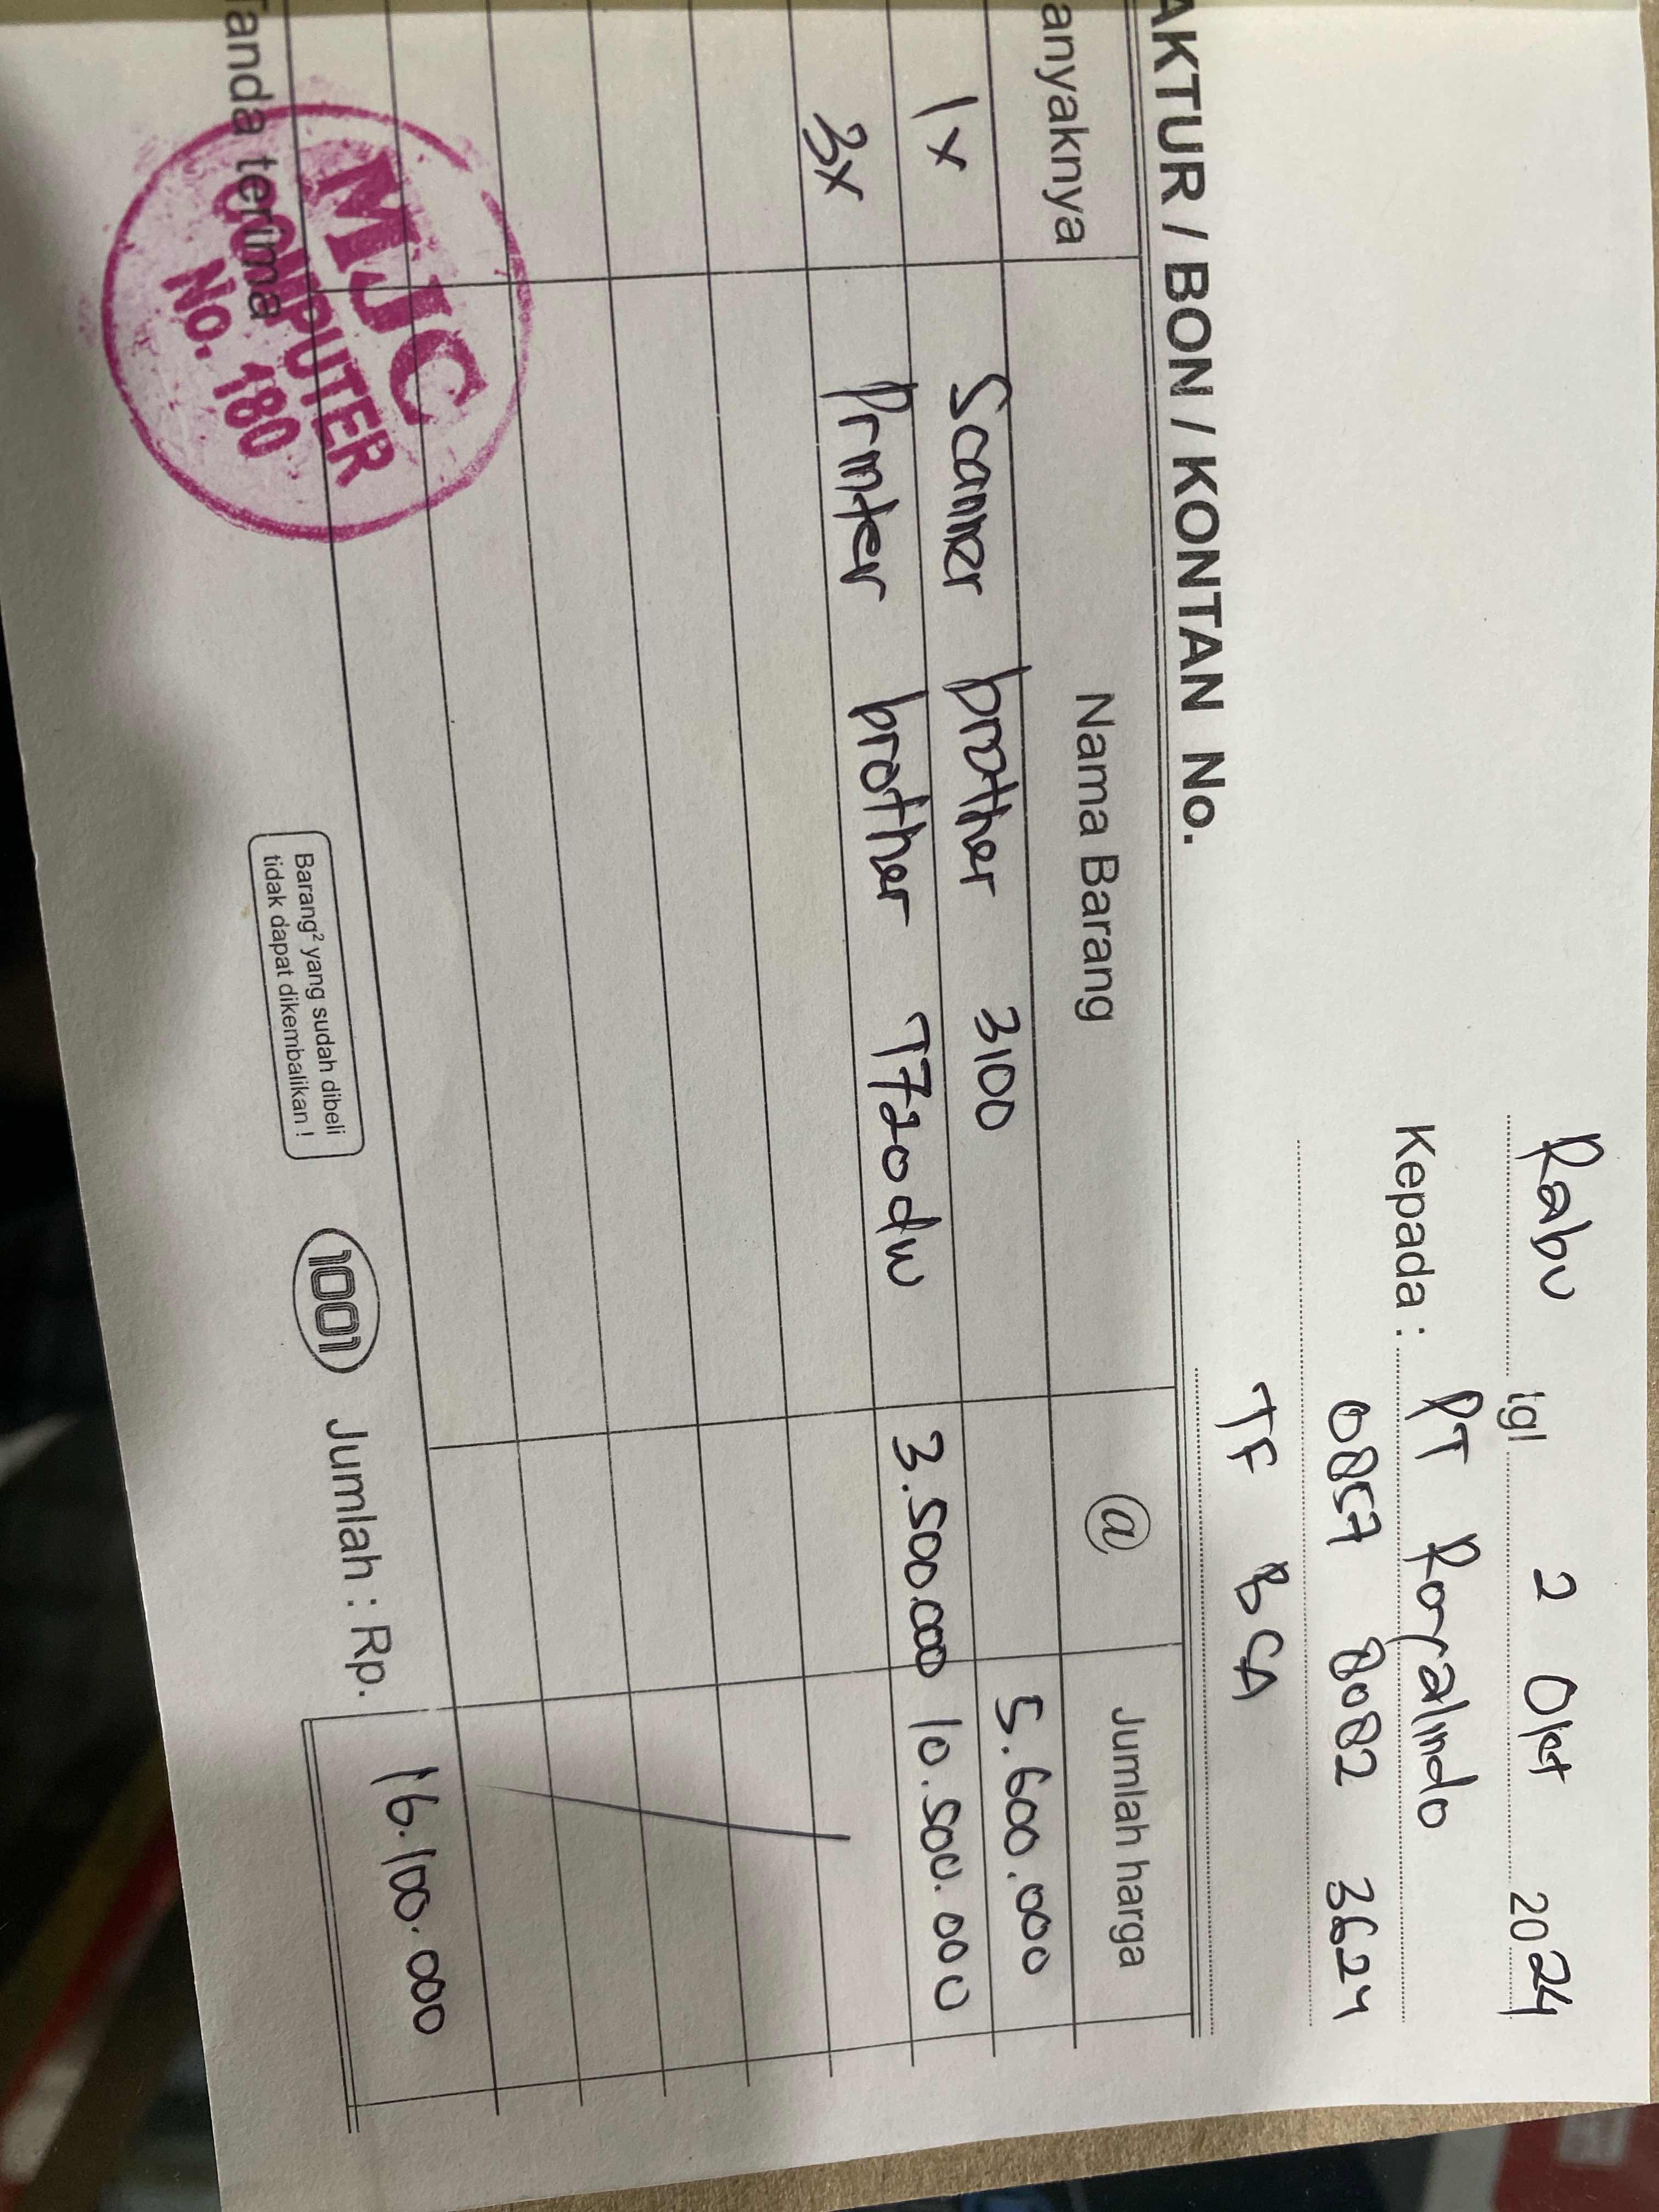 Rabu tgl 2 Okt 2024
Kepada : PT Royalindo
0857 8082 3624
TF BCA
AKTUR / BON / KONTAN No.
anyaknya Nama Barang @ Jumlah harga
1x Scanner brother 3100 5.600.000
3x Printer brother T720dw 3.500.000 10.500.000
Tanda terima
MJC
COMPUTER
No. 180
Barang² yang sudah dibeli
tidak dapat dikembalikan !
1001 Jumlah : Rp. 16.100.000